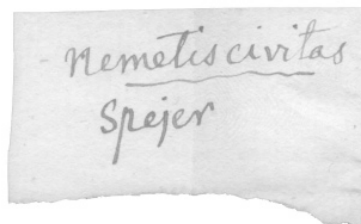 Nemetis civitas
Spejer